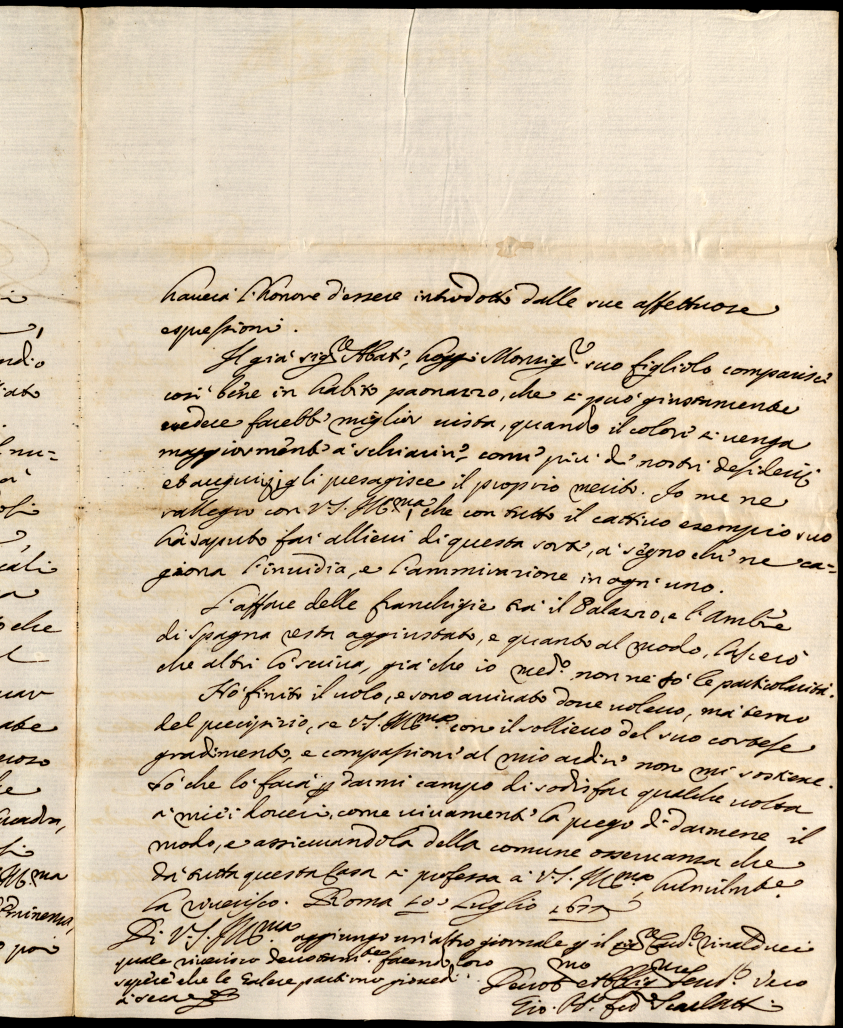 i
,
ndio
iato
.
l nu=
a
osi
cali
a
o che
l
uar
ate
uoso
he
uadri,
si
Ill.ma
Eminenza,
o poi
haverà l'honore d'essere introdotto dalle sue affettuose
espressioni.
Il già sig.re Abate, hoggi Monsig.re suo figliolo comparisce
così bene in habito paonazzo, che si può giustamente
credere farebbe miglior vista, quando il colore si venga
maggiormente a schiarire, come più de' nostri desiderij
et augurij gli presagisce il proprio merito. Io me ne
rallegro con V.S. Ill.ma, che con tutto il cattivo esempio suo
hà saputo fare allievi di questa sorte, a segno che ne ca=
giona l'invidia, e l'ammirazione in ogni uno.
L'affare delle franchigie trà il Palazzo, e l'Ambre
di Spagna resta aggiustato, e quanto al modo, lascerò
che altri lo scriva, già che io med.o non ne sò le particolarità.
Hò finito il volo, e sono arrivato dove volevo, mà temo
del precipizio, se V.S. Ill.ma con il sollievo del suo cortese
gradimento, e compassione al mio ardire non mi sostiene.
Sò che lo farà p darmi campo di sodisfare qualche volta
a miei doveri, come vivamente la prego di darmene il
modo, e assicurandola della comune osservanza che
da tutta questa Casa si professa a V.S. Ill.ma humilmte
la riverisco. Roma Luglio
Di V.S. Ill.ma aggiungo un'altro giornale p il sig.re Cav.re Rinalducci
quale riverisco devotam.te facendo loro
sapere che le Galere partirno giovedì
a sera
Devot.mo et Oblig.mo Serud.re Vero
Gio. B.a fed Scarlatti